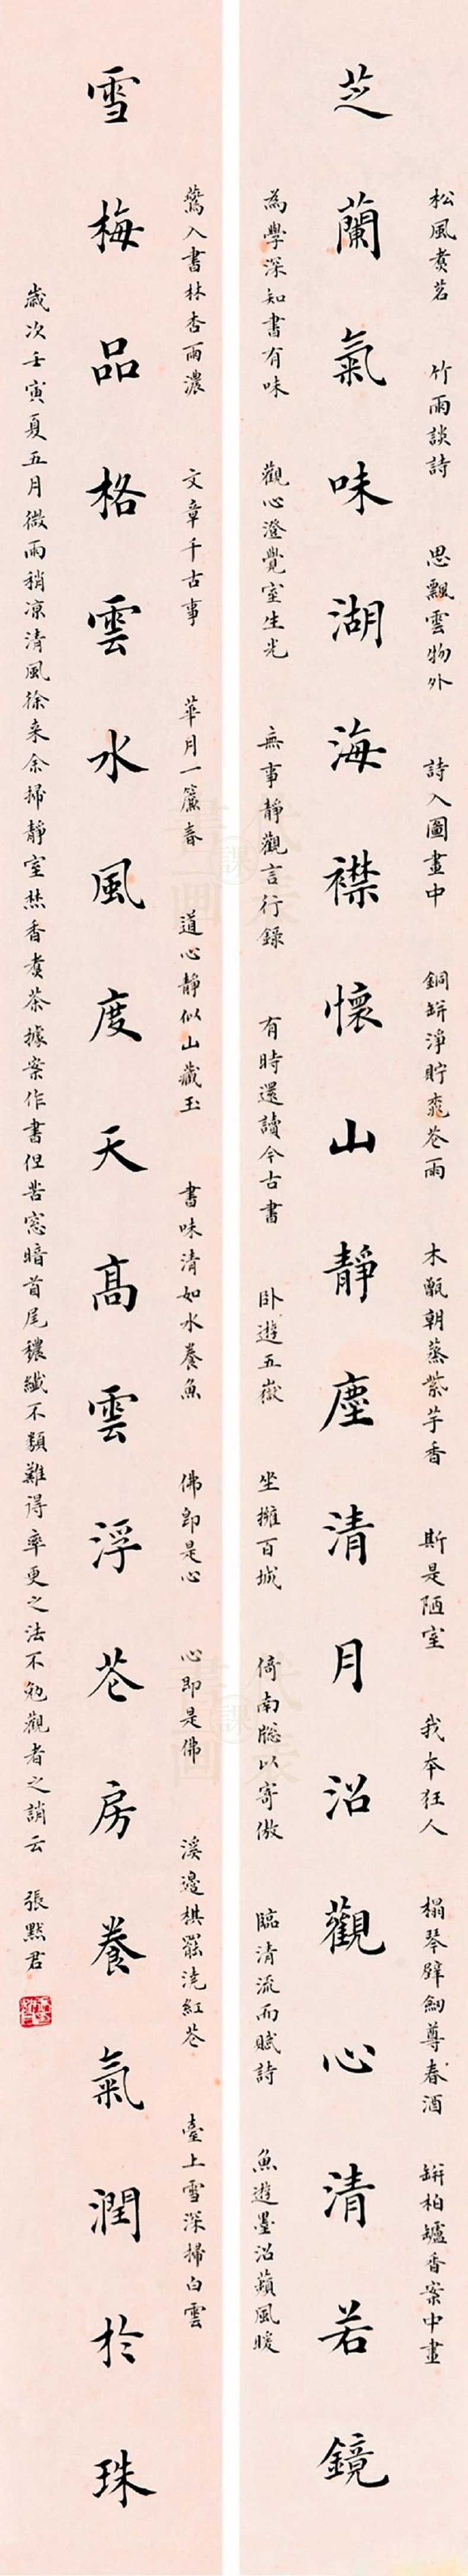 松風煑茗 竹雨談詩 思飄雲物外 詩入圖畫中 銅缾淨貯甤苍雨 木甑朝蒸紫芋香 斯是陋室 我本狂人 榻琴壁劒尊春酒 缾柏罏香案中畫
芝蘭氣味湖海襟懷山靜塵清月沼觀心清若鏡
為學深知書有味 觀心澄覺室生光 無事靜觀言行錄 有時還讀今古書 卧遊五嶽 坐擁百城 倚南牎以寄傲 臨清流而賦詩 魚遊墨沼蘋風暖
鶯入書林杏雨濃 文章千古事 華月一簾春 道心靜似山藏玉 書味清如水養魚 佛即是心 心即是佛 溪邊棋罷澆紅苍 臺上雪深掃白雲
雪梅品格雲水風度天高雲浮苍房養氣潤於珠
歲次壬寅夏五月微雨稍凉清風徐来余掃靜室焚香煑茶據案作書但苦窓暗首尾穠纖不類難得率更之法不勉觀者之誚云 張黙君